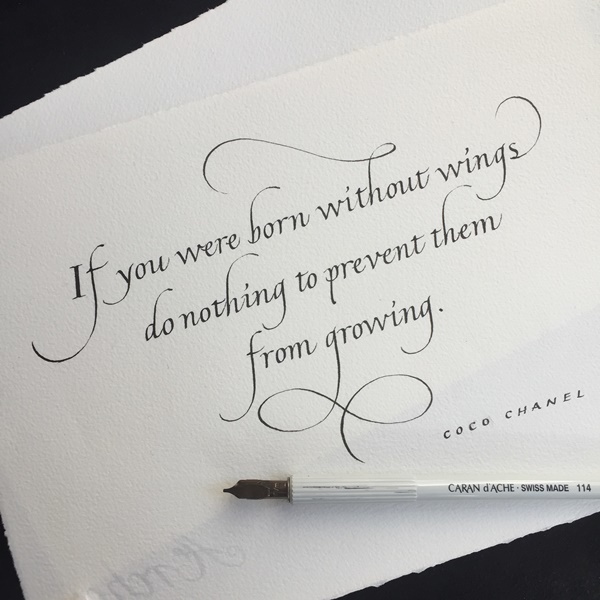 If you were born without wings
do nothing to prevent them
from growing.
COCO CHANEL
CARAN d'ACHE · SWISS MADE 114